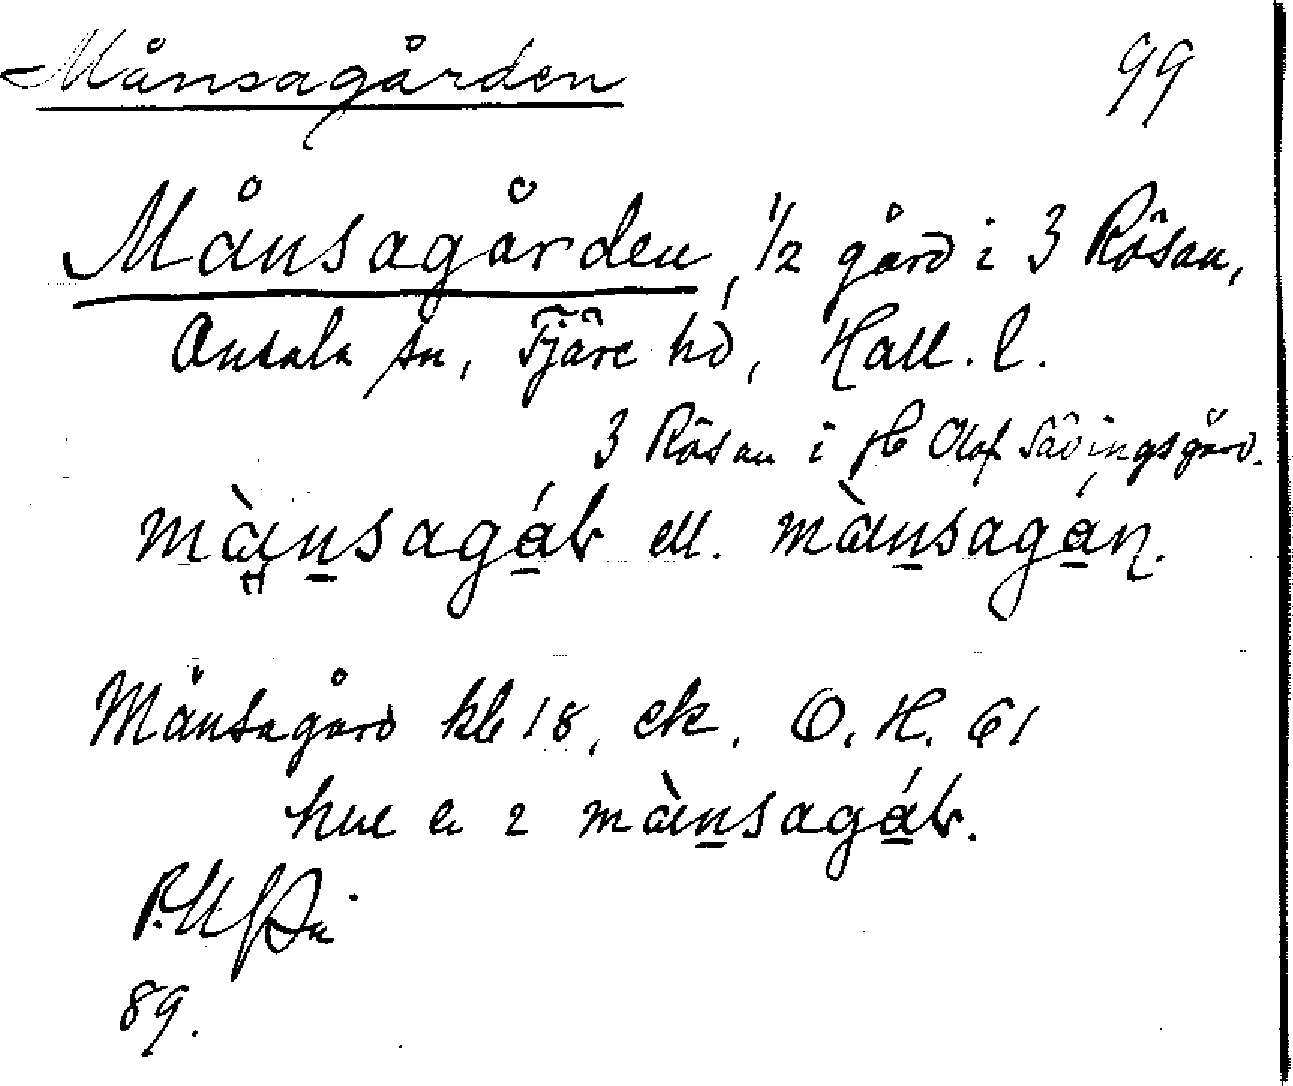 Månsagården 99
Månsagården, 1/2 gård i 3 Rösan,
Onsala sn, Fjäre hd, Hall. l.
3 Rösan i Olof Sävingsgård.
mànsagáb ell. mànsagán.
Månsagård kb 18, ek. O. H. 61
2 mànsagáb.
89.